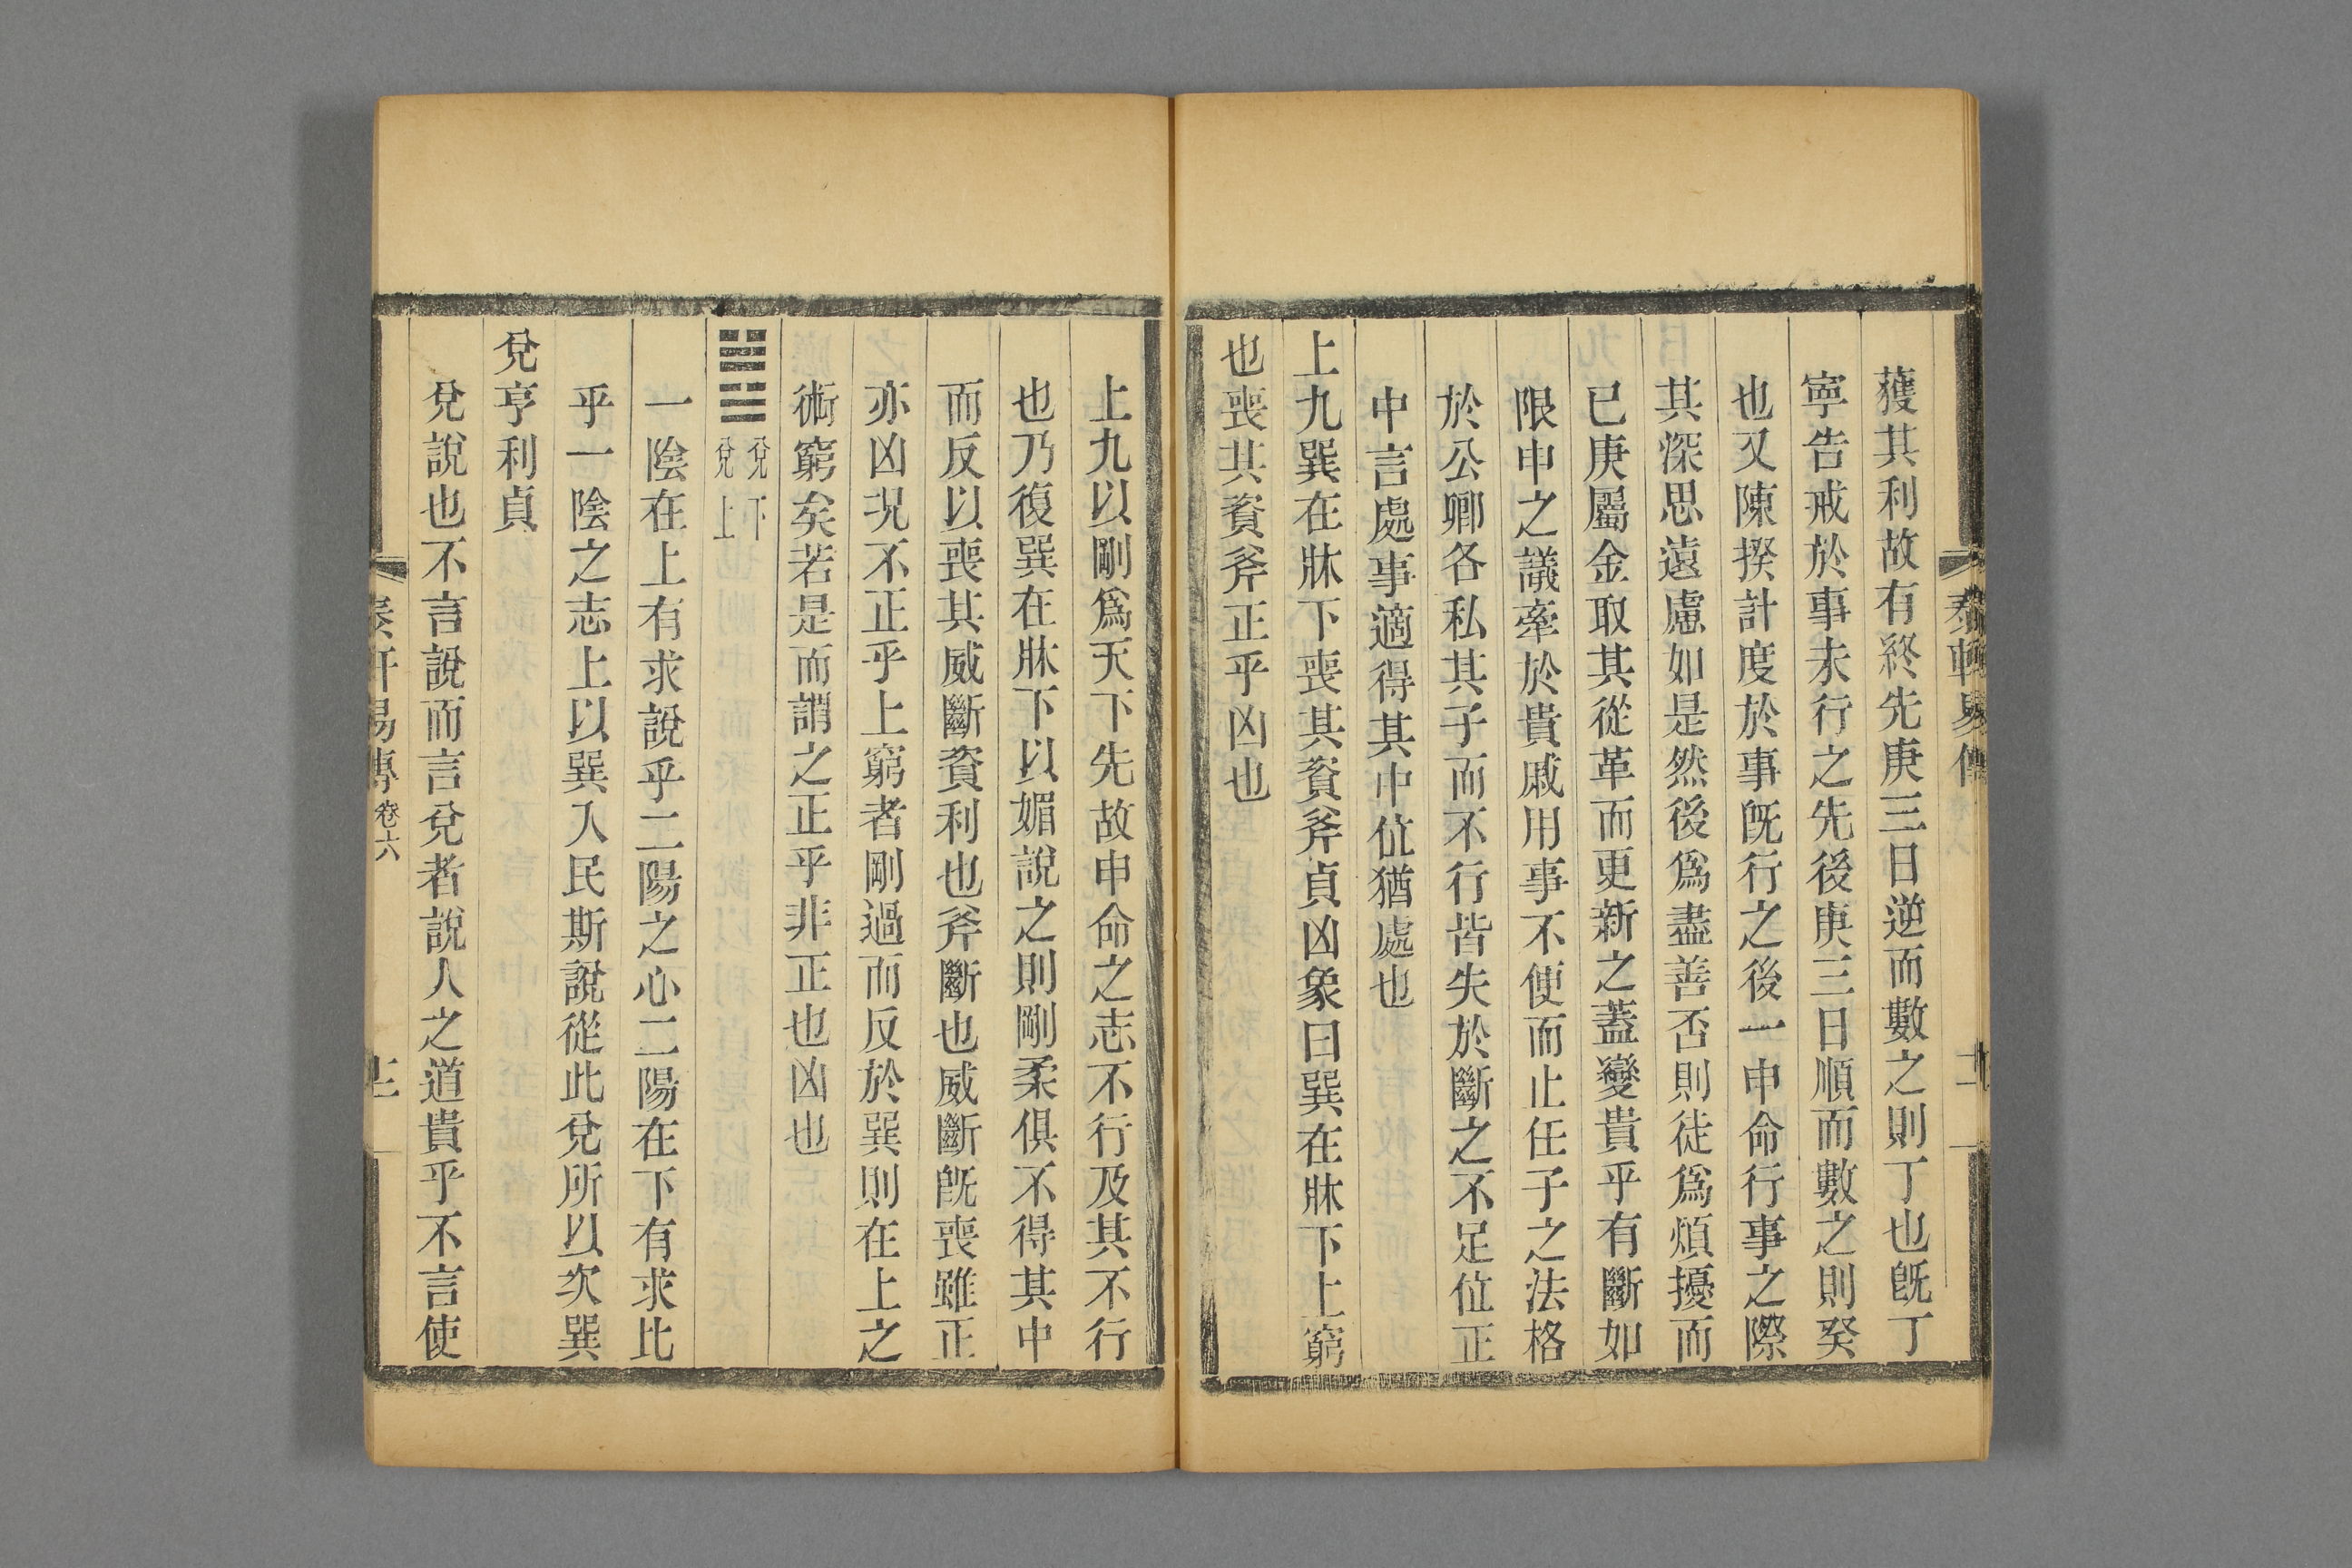 獲其利故有終先庚三日逆而數之則丁也旣丁
寧告戒於事未行之先後庚三日順而數之則癸
也又陳揆計度於事旣行之後一申命行事之際
其深思遠慮如是然後爲盡善否則徒爲煩擾而
已庚屬金取其從革而更新之蓋變貴乎有斷如
限申之議牽於貴戚用事不便而止任子之法格
於公卿各私其子而不行皆失於斷之不足位正
中言處事適得其中位猶處也
上九巽在牀下喪其資斧貞凶象曰巽在牀下上窮
也喪其資斧正乎凶也
上九以剛爲天下先故申命之志不行及其不行
也乃復巽在牀下以媚說之則剛柔俱不得其中
而反以喪其威斷資利也斧斷也威斷旣喪雖正
亦凶況不正乎上窮者剛過而反於巽則在上之
術窮矣若是而謂之正乎非正也凶也
兌下
兌上
一陰在上有求說乎二陽之心二陽在下有求比
乎一陰之志上以巽入民斯說從此兌所以次巽
兌亨利貞
兌說也不言說而言兌者說人之道貴乎不言使
易傳 卷六